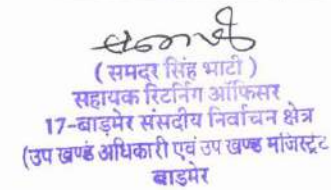 ( समदर सिंह भाटी )
सहायक रिटर्निंग ऑफिसर
17-बाड़मेर संसदीय निर्वाचन क्षेत्र
(उप खण्ड अधिकारी एवं उप खण्ड मजिस्ट्रेट
बाड़मेर